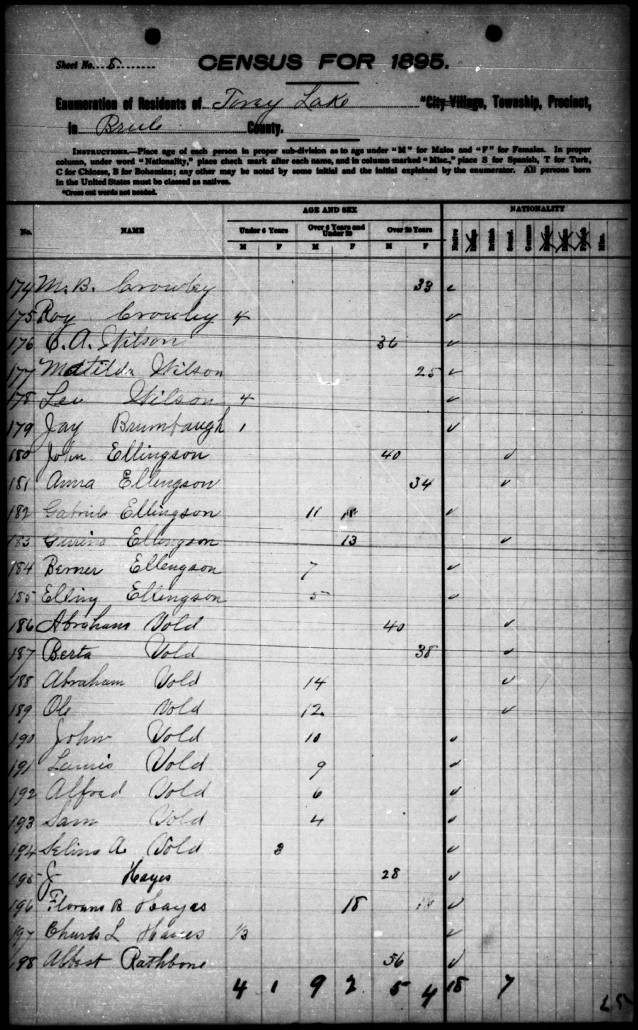 Sheet No. 5
CENSUS FOR 1895.
Enumeration of Residents of Torey Lake "City-Village, Township, Precinct,
in Brule County.
INSTRUCTIONS.—Place age of each person in proper sub-division as to age under "M" for Males and "F" for Females. In proper
column, under word "Nationality," place check mark after each name, and in column marked "Misc.," place S for Spanish, T for Turk,
C for Chinese, B for Bohemian; any other may be noted by some initial and the initial explained by the enumerator. All persons born
in the United States must be classed as natives.
*Cross out words not needed.
AGE AND SEX NATIONALITY
No. NAME Under 6 Years Over 6 Years and Under 20 Over 20 Years Native
M F M F M F
174 M. B. Crowley 33 ✓
175 Roy Crowley 4 ✓
176 C. A. Wilson 36 ✓
177 Matilda Wilson 25 ✓
178 Leo Wilson 4 ✓
179 Jay Brumbaugh 1 ✓
180 John Ellingson 40 ✓
181 Anna Ellingson 34 ✓
182 Gabriel Ellingson 11 ✓
183 Ellingson 13 ✓
184 Berner Ellengson 7 ✓
185 Elliny Ellingson 5 ✓
186 Abraham Vold 40 ✓
187 Berta Vold 38 ✓
188 Abraham Vold 14 ✓
189 Ole Vold 12 ✓
190 John Vold 10 ✓
191 Lauris Vold 9 ✓
192 Alfred Vold 6 ✓
193 Sam Vold 4 ✓
194 Selina A. Vold 3 ✓
195 J Hayes 28 ✓
196 Florans B Hayes 18 ✓
197 Charls L Hayes 1/3 ✓
198 Albert Rathbone 56 ✓
4 1 9 2 5 4 18 7
25